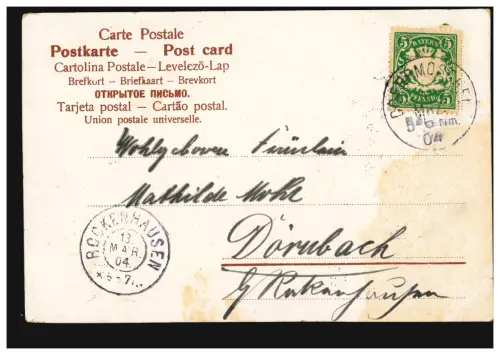 Carte Postale
Postkarte — Post card
Cartolina Postale — Levelező-Lap
Brefkort — Briefkaart — Brevkort
ОТКРЫТОЕ ПИСЬМО.
Tarjeta postal — Cartão postal.
Union postale universelle.
5 BAYERN 5
MRZ
Nm.
04
Wohlgeboren Fräulein
Mathilde Mohr
Dörnbach
b/ Rockenhausen
ROCKENHAUSEN
13.
MAR.
04